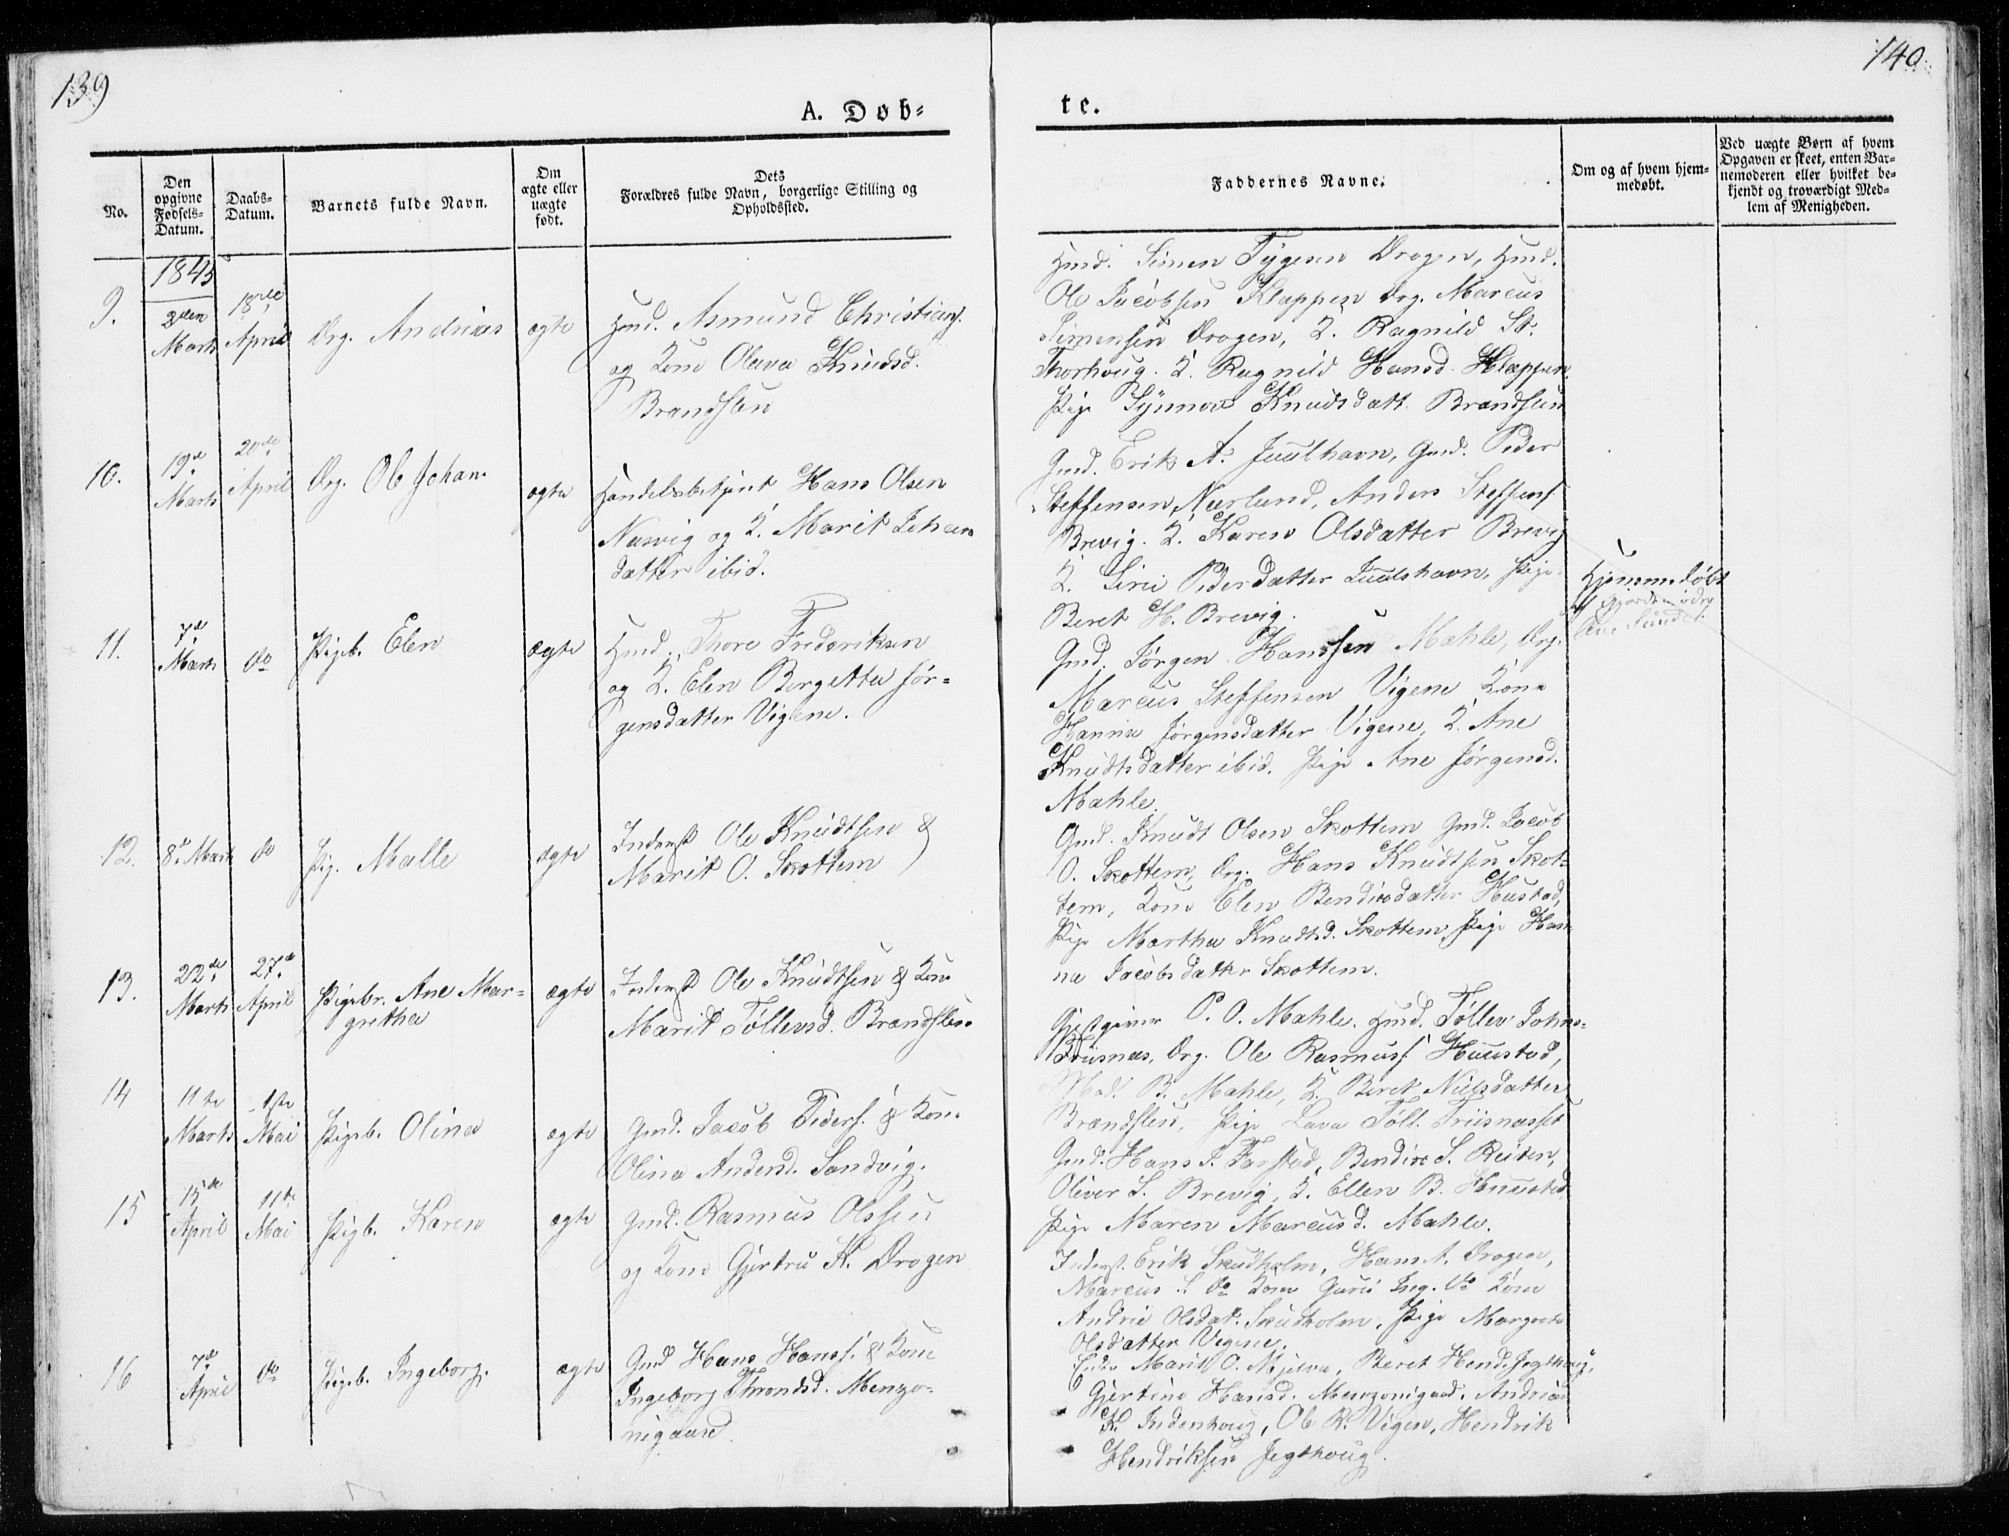 139
140
A. Døb-
te.
No.
Den
opgivne
Fødsels-
Datum.
Daabs-
Datum.
Barnets fulde Navn.
Om
ægte eller
uægte
født.
Dets
Forældres fulde Navn, borgerlige Stilling og
Opholdssted.
Faddernes Navne.
Om og af hvem hjem-
medøbt.
Ved uægte Børn af hvem
Opgaven er skeet, enten Bar-
nemoderen eller hvilket be-
kjendt og troværdigt Med-
lem af Menigheden.
1845
9.
2den
Marts
18de
April
Drg. Andreas
ægte
Hmd. Asmund Christians.
og Kone Olava Knudsd.
Brandslien
Hmd. Simen Tygesen Drogen, Hmd.
Ole Jacobsen Klappen Drg. Marcus
Simensen Drogen, K. Ragnild St.
Thorhoug. K. Ragnild Hansd. Klappen
Pige Synnove Knudsdatt. Brandslien
10.
19de
Marts
20de
April
Drg. Ole Johan.
ægte
Handelsbetjent Hans Olsen
Nasvig og K. Marit Johan
datter ibid.
Gmd. Erik A. Juulhavn, Gmd. Peder
Steffensen Nerlund, Anders Steffens.
Brevig. K. Karen Olsdatter Brevig
K. Siri Pedersdatter Juulshavn, Pige
Beret H. Brevig.
11.
7de
Marts
do
Pigeb. Elen
ægte
Hmd. Thore Frederiksen
og K. Elen Bergitta Jør-
gensdatter Vigene.
Gmd. Jørgen Hanssen Mahle, Drg.
Marcus Steffensen Vigene Kone
Hanna Jørgensdatter Vigene, K. Ane
Knudtsdatter ibid. Pige Ane Jørgensd.
Mahle.
Hjemmedøbt
af Gjordemoder
Ane Sundet.
12.
8de Marts
do
Pig. Malle
ægte
Inderst Ole Knudtsen &
Marit O. Skottem
Gmd. Knudt Olsen Skottem Gmd. Jacob
O. Skottem, Drg. Hans Knudtsen Skot-
tem, Kone Elen Bendixdatter Hustad,
Pige Martha Knudtsd. Skottem, Pige Han
na Jacobsdatter Skottem.
13.
22de
Marts
27de
April
Pigebr. Ane Mar-
gretha
ægte
Inderst Ole Knudtsen & Kone
Marit Tøllevsd. Brandslien
Gjestgiver P. O. Mahle. Hmd. Tøllev Johns.
Triisnæs, Drg. Ole Rasmuss. Huustad,
Mad. B. Mahle, K. Beret Nielsdatter
Brandslien, Pige Lava Toll. Triisnæsset
14
11te
Marts
1ste
Mai
Pigeb. Olina
ægte
Gmd. Jacob Peders. & Kone
Olina Andersd. Sandvig.
Gmd. Hans P. Farstad, Bendix S. Reiten,
Oliver S. Brevig, K. Ellen B. Huustad
Pige Maren Marcusd. Mahle.
15
15de
April
11te
Mai
Pigb. Karen
ægte
Gmd. Rasmus Olssen
og Kone Gjertru K. Drogen
Inderst. Erik Skudholm, Hans A. Drogen,
Marcus S. do Kone Guri Ing. do Kone
Andrie Olsdat. Skudholm, Pige Margrete
Olsdatter Vigene.
16
7de
April
do
Pigeb. Ingeborg.
ægte
Gmd Hans Hanss. & Kone
Ingeborg Throndsd. Menzo-
nigaard.
Enke Marit O. Mjelva, Beret Hend. Jegthoug,
Gjertine Hansd. Menzonigaard, Andreas
K. Indenhoug, Ole R. Vigen, Hendrik
Hendriksen Jegthoug.